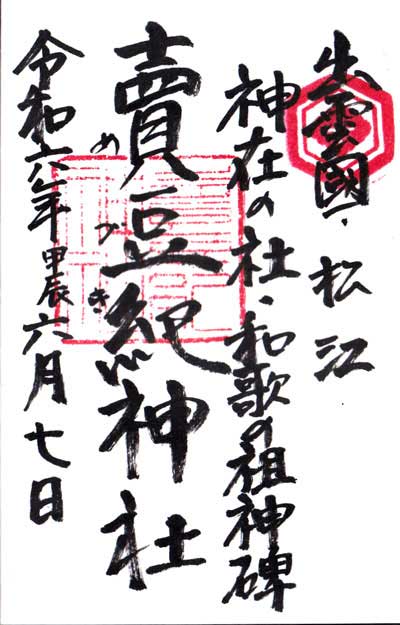 出雲國・松江
神在の社・和歌の祖神碑
賣豆紀神社
めづき
令和六年甲辰六月七日